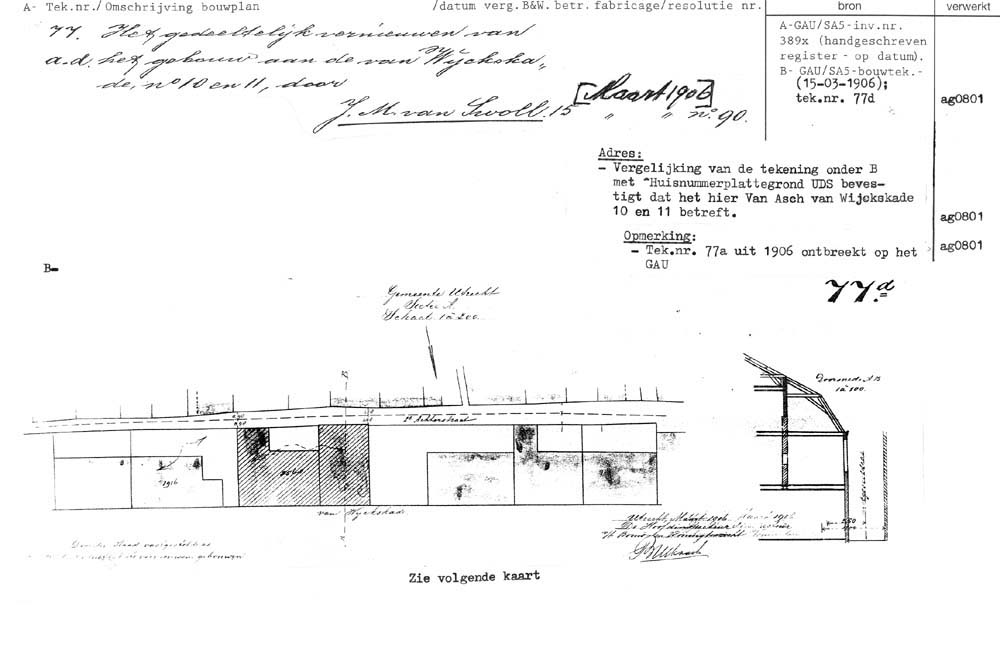 A- Tek.nr./Omschrijving bouwplan /datum verg.B&W. betr.fabricage/resolutie nr. bron verwerkt
77. Het gedeeltelijk vernieuwen van
a.d. het gebouw aan de van Wijckska„
de, nº 10 en 11, door
J. M. van Swoll. 15 [Maart 1906]
„ „ nº 90.
A-GAU/SA5-inv.nr.
389x (handgeschreven
register - op datum).
B- GAU/SA5-bouwtek.-
(15-03-1906);
tek.nr. 77d
ag0801
Adres:
- Vergelijking van de tekening onder B
met "Huisnummerplattegrond UDS beves-
tigt dat het hier Van Asch van Wijckskade
10 en 11 betreft.
ag0801
Opmerking:
- Tek.nr. 77a uit 1906 ontbreekt op het
GAU
ag0801
B-
77d
Gemeente Utrecht
Sectie A.
Schaal 1 à 200.
Doorsnede A B
1 à 100.
Achterstraat
1916
van Wijckskade
B
A
Utrecht, Maart 1906
Zie volgende kaart